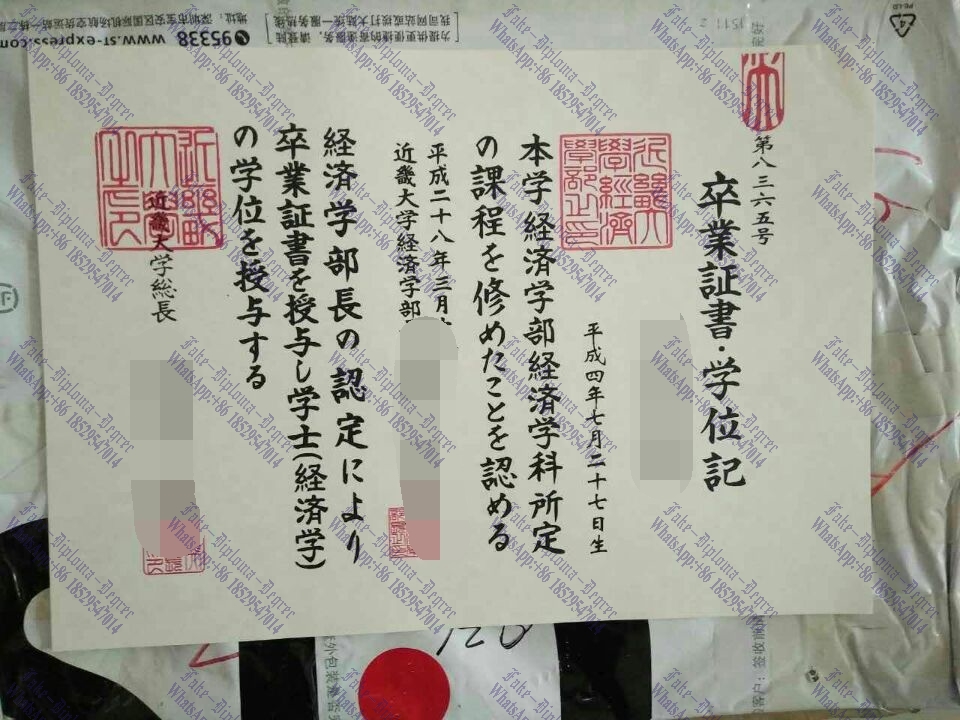 第八三六五号
卒業証書・学位記
平成四年七月二十七日生
本学経済学部経済学科所定
の課程を修めたことを認める
平成二十八年三月
近畿大学経済学部
経済学部長の認定により
卒業証書を授与し学士(経済学)
の学位を授与する
近畿大学総長
近畿大学経済学部之印
95338 www.sf-express.com
PE-LD
120
Fake-Diploma-Degree
WhatsApp:+86 18529547014